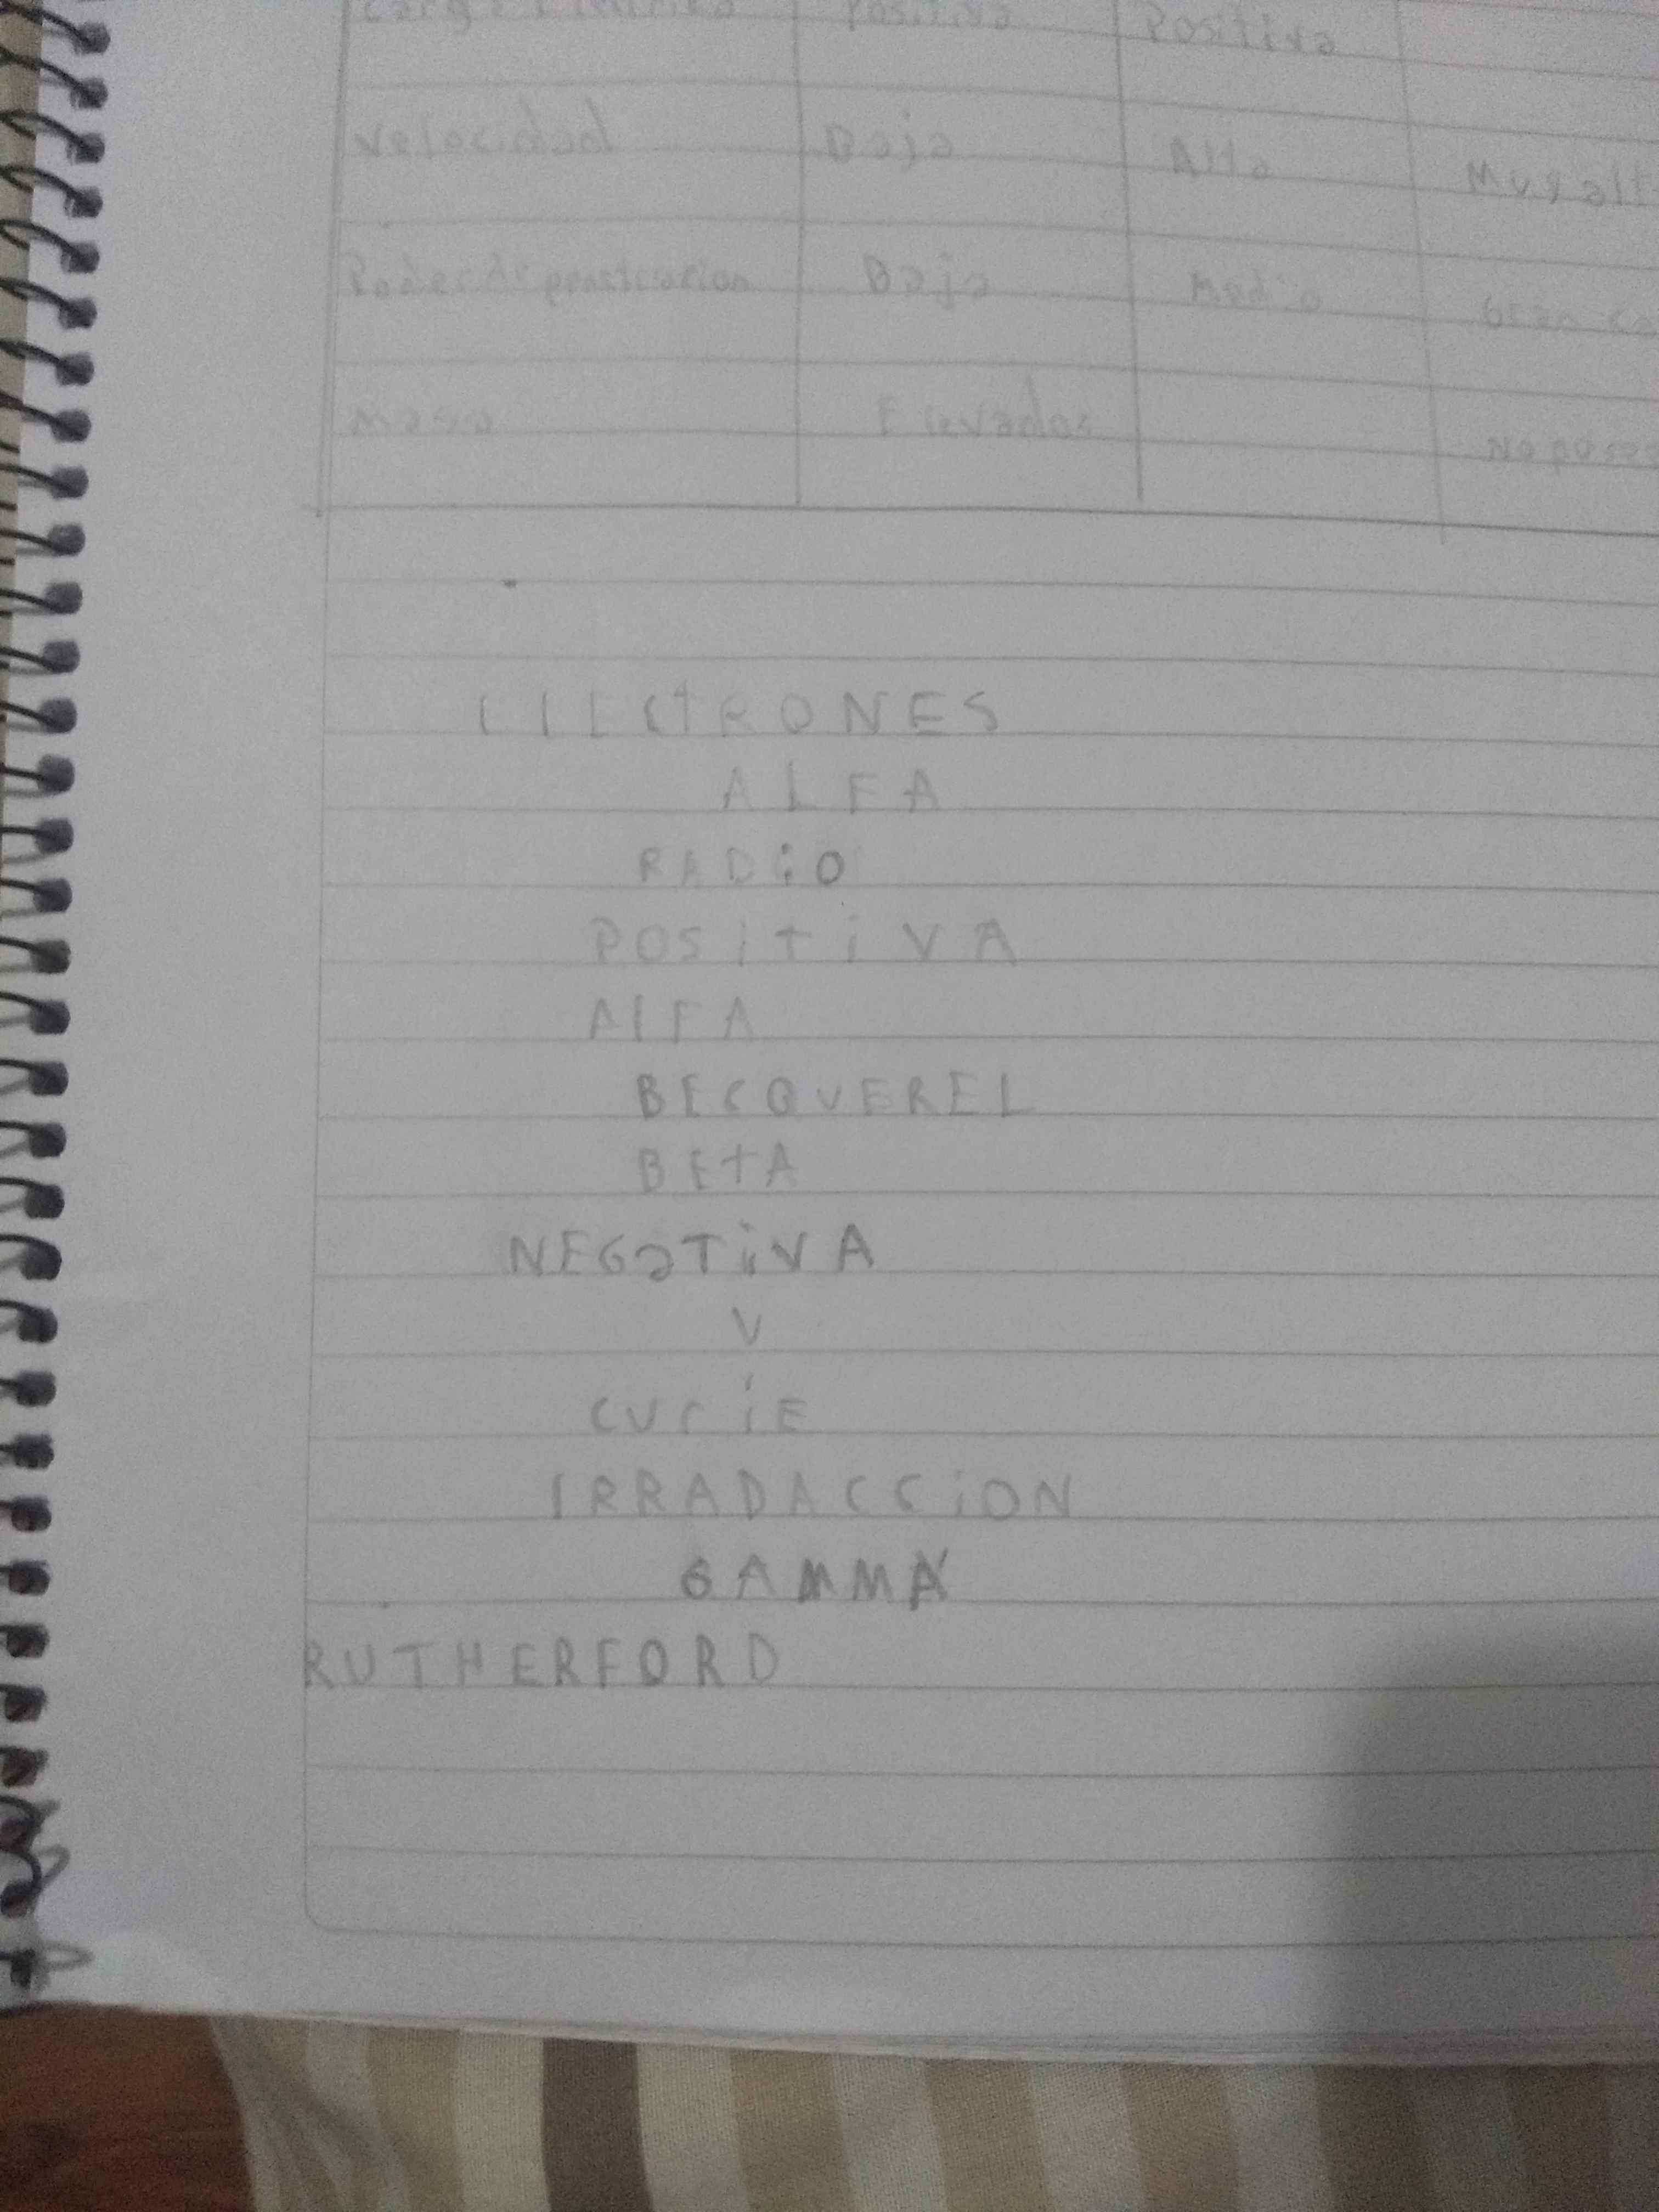 Positiva Positiva
Velocidad Baja Alta Muy alt
Poder de penetracion Baja Medio Gran ca
masa Elevados No posee
ELECTRONES
ALFA
RADiO
POSITiVA
ALFA
BECQUEREL
BETA
NEGaTiVA
V
CUriE
IRRADACCiON
GAMMA
RUTHERFORD